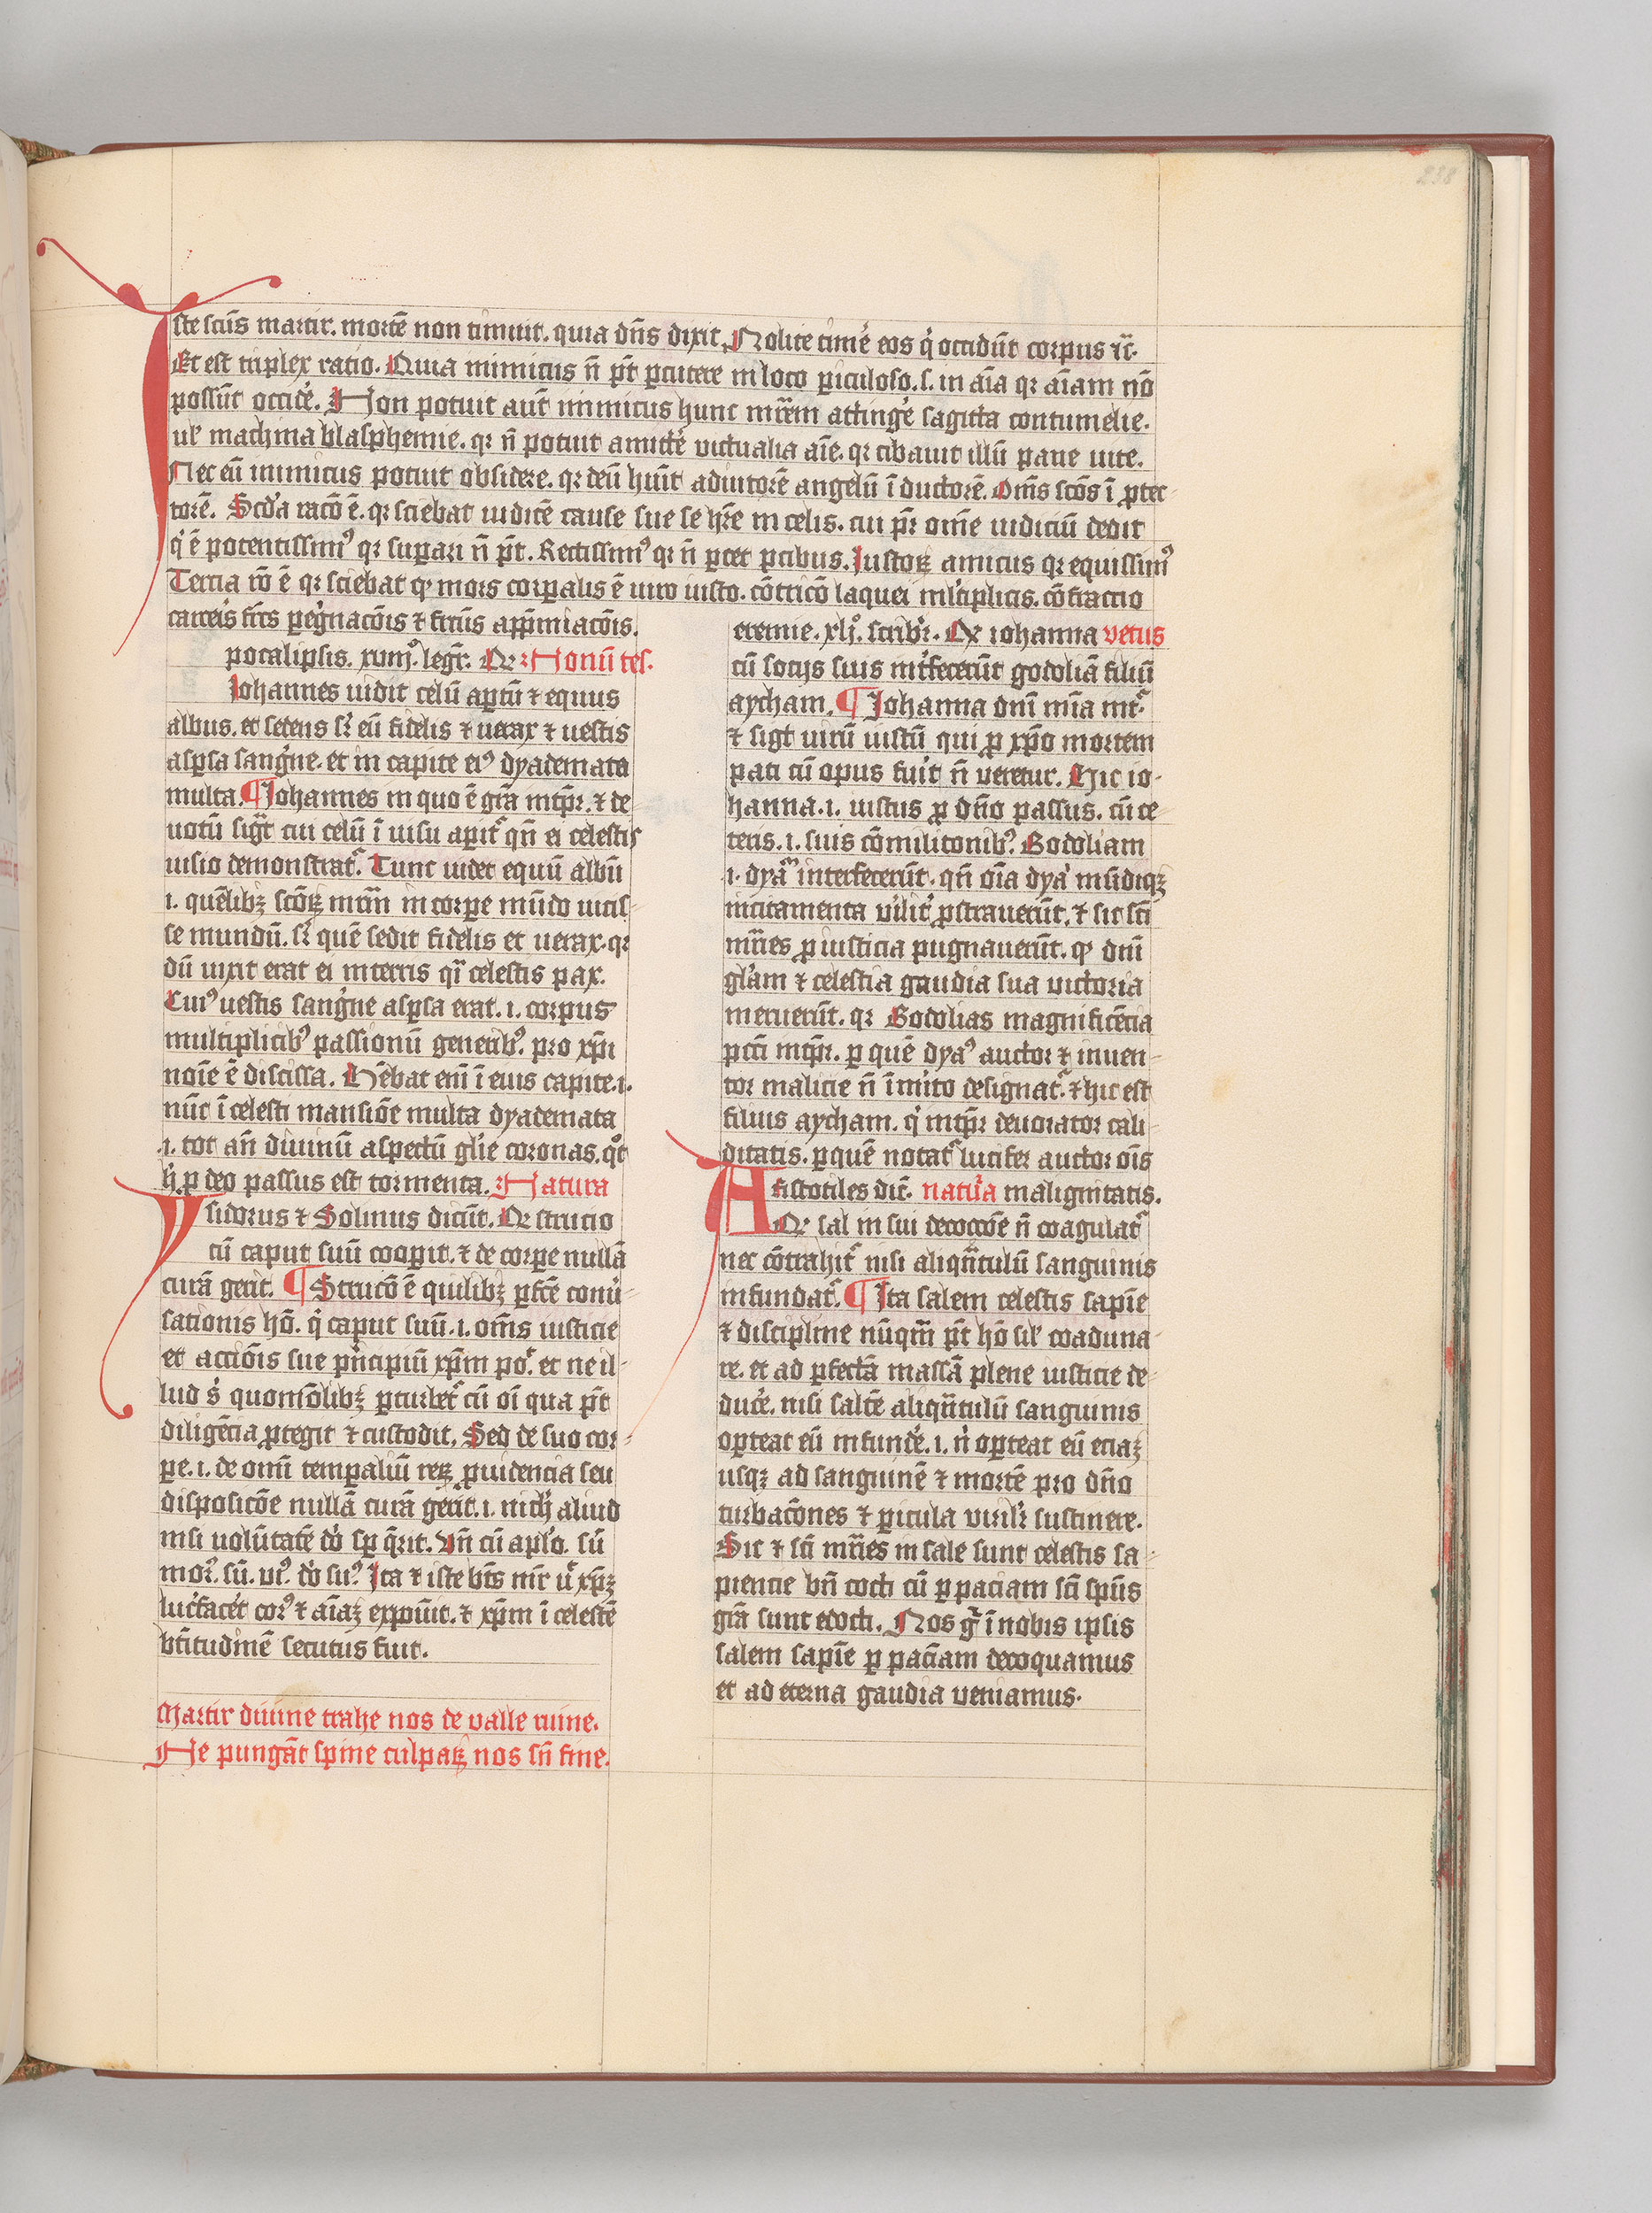 238
Iste sc̄us martir. mortē non timuit. quia dn̄s dixit. Nolite tim̄e eos q̇ occidūt corpus ⁊c̄.
Et est triplex ratio. Quia inimicus n̄ pt̄ ꝑcutere in loco ꝑiculoso. s. in aīa qꝛ aīam nō
possūt occid̄e. Non potuit aut̄ inimicus hunc mr̄em attinḡe sagitta contumelie.
ul' machina blasphemie. qꝛ n̄ potuit amitt̄e victualia aīe. qꝛ cibauit illū pane uite.
Nec eū inimicus potuit obsidere. qꝛ deū hūit adiutorē angelū ī ductorē. Om̄s sc̄os ī ꝓtec-
torē. Scd'a racō ē. qꝛ sciebat iudicē cause sue se hr̄e in celis. cui pr̄ om̄e iudiciū dedit
q̇ ē potentissimꝰ qꝛ suꝑari n̄ pt̄. Rectissimꝰ qꝛ n̄ ꝑcet ꝑcibus. Iustoꝝ amicus qꝛ equissimꝰ
Tercia rō ē qꝛ sciebat ꝙ mors corꝑalis ē uiro iusto. cōtricō laquei ml'tiplicis. cōfractio
carceris
pocalipsis. xviiijº. legr̄. Qꝛ Nouū tes.
Iohannes uidit celū aꝑtū ⁊ equus
albus. et sedens sꝛ eū fidelis ⁊ uerax ⁊ uestis
asꝑsa sang̍ne. et in capite eiꝰ dyademata
multa. ¶ Iohannes in quo ē grā intꝑr. ⁊ de-
uotū sigt̄ cui celū ī uisu aꝑit̉ qn̄ ei celestis
uisio demonstrat̉. Tunc uidet equū albū
.i. quēlibꝫ sc̄oꝝ mr̄m in corꝑe mūdo uicis-
se mundū. sꝛ quē sedit fidelis et uerax. qꝛ
dū uixit erat ei in terris qi celestis pax.
Cuiꝰ uestis sang̍ne asꝑsa erat. i. corpus
multiplicibꝰ passionū generibꝰ. pro xp̄i
noīe ē discissa. Hēbat eni ī eius capite. i.
nūc ī celesti mansiōe multa dyademata
.i. tot an̄ diuinū aspectū gl'ie coronas. qͦt
h̍ ꝓ deo passus est tormenta. Natura
Ysidorus ⁊ Solinus dicūt. Qꝛ strucio
cū caput suū cooꝑit. ⁊ de corꝑe nullā
curā gerit. ¶ Strucō ē quilibꝫ ꝑfcē conu̍-
sationis hō. q̇ caput suū. i. om̄s iusticie
et acciōis sue pn̍cipiū xp̄m po. et ne il-
lud s̍ quomōlibꝫ ꝑturbet̉ cū oī qua pt̄
diligēcia ꝓtegit ⁊ custodit. Sed de suo cor-
ꝑe. i. de omī temꝑaliū reꝝ ꝓuidencia seu
disposicōe nullā curā gerit. i. nich̍ aliud
nisi uolūtatē d̍o sꝑ q̄rit. Vn̄ cū aplo. sū
morꝰ. sū. viꝰ. d̍o suꝰ. Ita ⁊ iste bt̄s mr̄ u̍ xp̄ꝫ
luc̍facet corꝰ ⁊ aīaꝫ expouit. ⁊ xp̄m ī celestē
bt̄itudinē secutus fuit.
Martir diuine trahe nos de valle ruine.
Ne pungāt spine culpaꝝ nos sn̄ fine.
eremie. xljº. scribꝛ. Qꝛ iohanna vetus
cū socijs suis int̍fecerūt godoliā filiū
aycham. ¶ Iohanna dnī mīa int̉.
⁊ sigt̄ uirū iustū qui ꝓ xp̄o mortem
pati cū opus fuit n̄ veretur. Hic io-
hanna. i. iustus ꝓ dn̄o passus. cū ce-
teris. i. suis cōmilitonibꝰ. Godoliam
.i. dyam̄ interfecerūt. qn̄ oīa dya̍ mūdiqꝫ
incitamenta virilit̍ ꝓstrauerūt. ⁊ sic sc̄i
mr̄ies ꝓ iusticia pugnauerūt. ꝙ dnī
gl'am ⁊ celestia gaudia sua victoria
meruerūt. qꝛ Godolias magnificēcia
pcc̄i intꝑr. ꝑ quē dyaꝰ auctor ⁊ inuen-
tor malicie n̄ īmito designat̉. ⁊ hic est
filius aycham. q̇ intꝑr deuorator cali-
ditatis. ꝑ quē notat̉ lucifer auctor oīs
Aristotiles dic̄. natura malignitatis.
Qꝛ sal in sui decoccōe n̄ coagulat̉
nec cōtrahit̉ nisi aliqn̄tulū sanguinis
infundat̉. ¶ Ita salem celestis sapīe
⁊ discipline nūqm̄ pt̄ hō sil' coaduna-
re. et ad ꝑfectā massā plene iusticie de-
duc̄e. nisi saltē aliqn̄tulū sanguinis
oꝑteat eū infund̄e. i. n̍ oꝑteat eū eciaꝫ
usqꝫ ad sanguinē ⁊ mortē pro dn̄o
turbacōnes ⁊ ꝑicula virilꝛ sustinere.
Sic ⁊ sc̄i mr̄ies in sale sunt celestis sa-
piencie bn̄ cocti cū ꝑ paciam sc̄i spūs
grā sunt edocti. Nos g̍ ī nobis ipsis
salem sapīe ꝑ paciam decoquamus
et ad eterna gaudia veniamus.